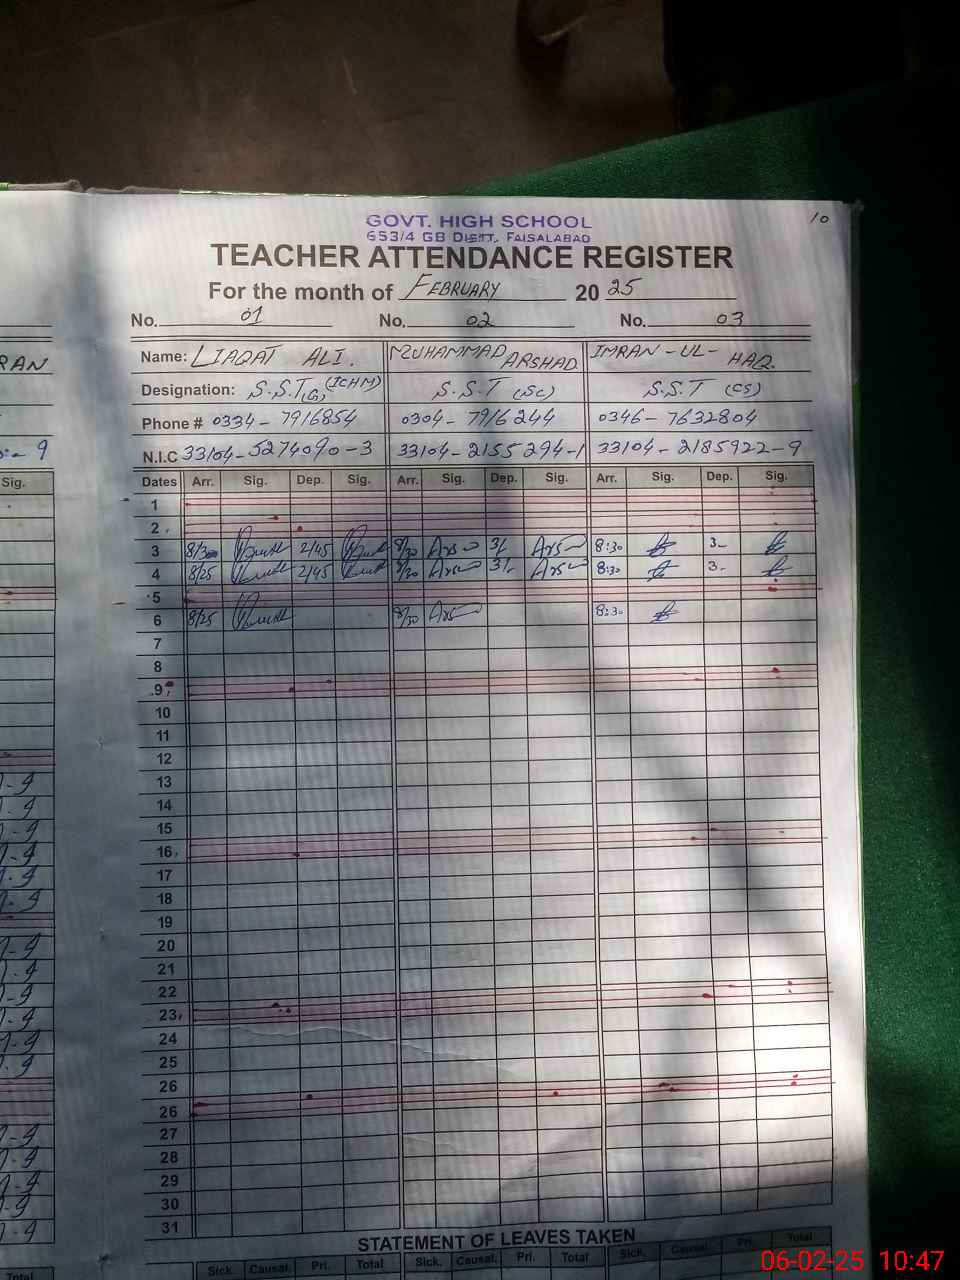 10
GOVT. HIGH SCHOOL
653/4 GB DISTT. FAISALABAD
TEACHER ATTENDANCE REGISTER
For the month of FEBRUARY 20 25
No. 01 No. 02 No. 03
Name: LIAQAT ALI. MUHAMMAD ARSHAD IMRAN-UL-HAQ.
Designation: S.S.T(G) (ICHM) S.S.T (SC) S.S.T (CS)
Phone # 0334-7916854 0304-7916244 0346-7632804
N.I.C 33104-5274090-3 33104-2155294-1 33104-2185922-9
Dates Arr. Sig. Dep. Sig. Arr. Sig. Dep. Sig. Arr. Sig. Dep. Sig.
1
2
3 8/30 2/45 8/30 3/- 8:30 3-
4 8/25 2/45 8/30 3/- 8:30 3-
5
6 8/25 8/30 8:30
7
8
9
10
11
12
13
14
15
16
17
18
19
20
21
22
23
24
25
26
26
27
28
29
30
31
STATEMENT OF LEAVES TAKEN
Sick Causal. Pri. Total Sick. Causal. Pri. Total Sick. Causal Pri. Total
RAN
9
Sig.
Total
06-02-25 10:47